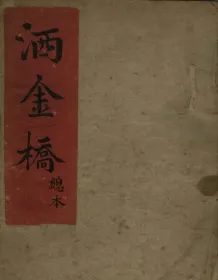 洒金橋
總本